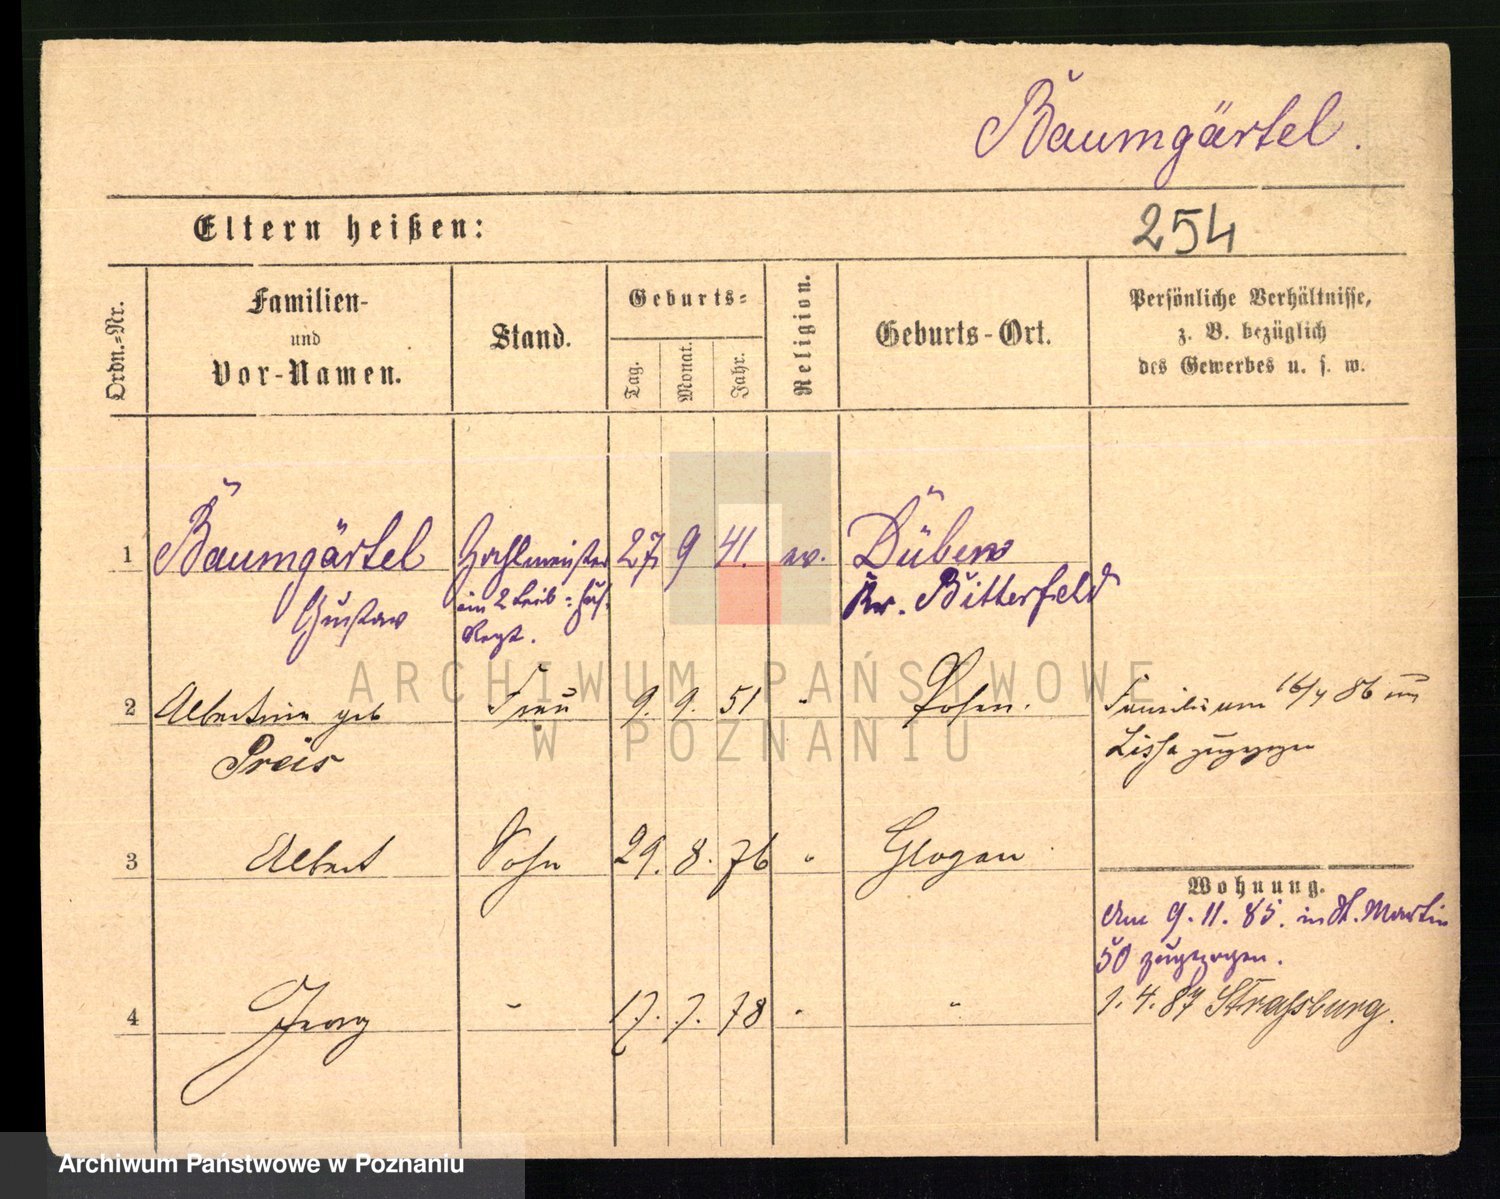 Baumgärtel.
Eltern heißen:
254
Ordn.-Nr.
Familien-
und
Vor-Namen.
Stand.
Geburts-
Tag.
Monat.
Jahr.
Religion.
Geburts-Ort.
Persönliche Verhältnisse,
z. B. bezüglich
des Gewerbes u. s. w.
1 Baumgärtel Zahlmeister 27 9 41. ev. Düben
Gustav im 2 Leib-Hus. Kr. Bitterfeld
Regt.
2 Albertine geb Frau 9. 9. 51 " Posen. Familie am 16/4 86 von
Preis Lissa zugezogen
3 Albert Sohn 29. 8. 76 " Glogau
Wohnung.
Am 9. 11. 85. in St. Martin
50 zugezogen.
4 Georg " 17. 7. 78 " " 1. 4. 87 Straßburg.
ARCHIWUM PAŃSTWOWE
W POZNANIU
Archiwum Państwowe w Poznaniu